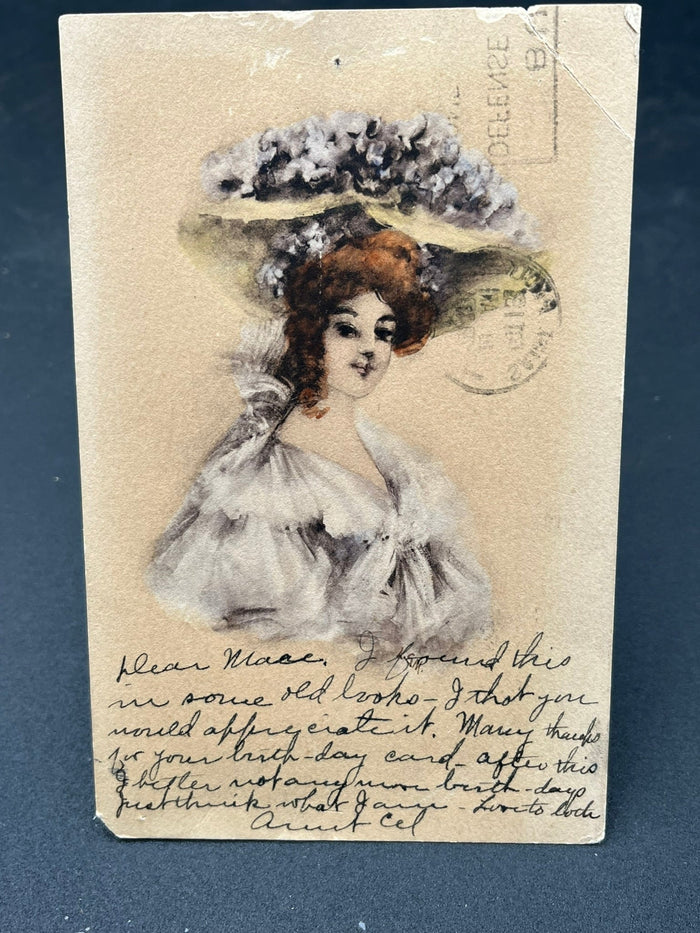 DEFENSE
B
Dear Mace. I found this
in some old books - I thot you
would appreciate it. Many thanks
for your birth-day card - after this
I better not any more birth-days
Just think what I am - Love to both
Aunt Cel